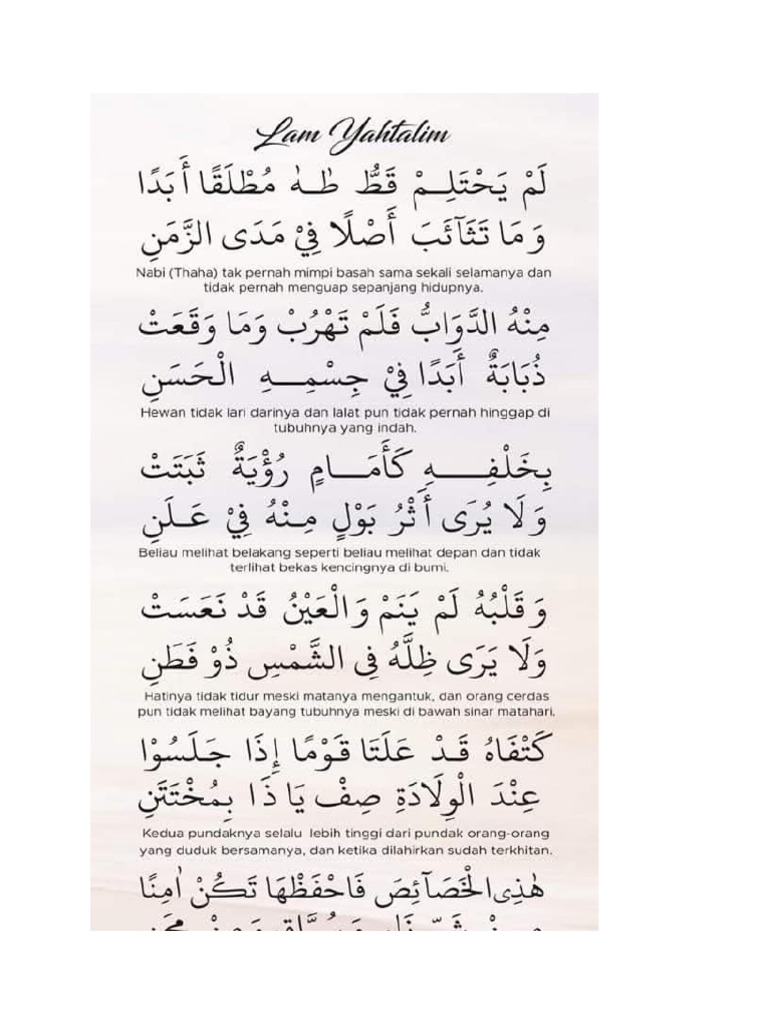 Lam Yahtalim
لَمْ يَحْتَلِـمْ قَطُّ طٰـهٰ مُطْلَقًا أَبَدًا
وَمَا تَثَآئَبَ أَصْلًا فِيْ مَدَى الزَّمَنِ
Nabi (Thaha) tak pernah mimpi basah sama sekali selamanya dan
tidak pernah menguap sepanjang hidupnya.
مِنْهُ الدَّوَابُّ فَلَمْ تَهْرُبْ وَمَا وَقَعَتْ
ذُبَابَةٌ أَبَدًا فِيْ جِسْمِـهِ الْحَسَنِ
Hewan tidak lari darinya dan lalat pun tidak pernah hinggap di
tubuhnya yang indah.
بِخَلْفِـهِ كَأَمَـامٍ رُؤْيَةٌ ثَبَتَتْ
وَلَا يُرَى أَثْرُ بَوْلٍ مِنْهُ فِيْ عَـلَنِ
Beliau melihat belakang seperti beliau melihat depan dan tidak
terlihat bekas kencingnya di bumi.
وَقَلْبُهُ لَمْ يَنَمْ وَالْعَيْنُ قَدْ نَعَسَتْ
وَلَا يَرَى ظِلَّهُ فِى الشَّمْسِ ذُوْ فَطَنِ
Hatinya tidak tidur meski matanya mengantuk, dan orang cerdas
pun tidak melihat bayang tubuhnya meski di bawah sinar matahari.
كَتْفَاهُ قَـدْ عَلَتَا قَوْمًا إِذَا جَـلَسُوْا
عِنْدَ الْوِلَادَةِ صِفْ يَا ذَا بِمُخْتَتَنِ
Kedua pundaknya selalu lebih tinggi dari pundak orang-orang
yang duduk bersamanya, dan ketika dilahirkan sudah terkhitan.
هٰذِى الْخَصَآئِصَ فَاحْفَظْهَا تَكُنْ اٰمِنًا